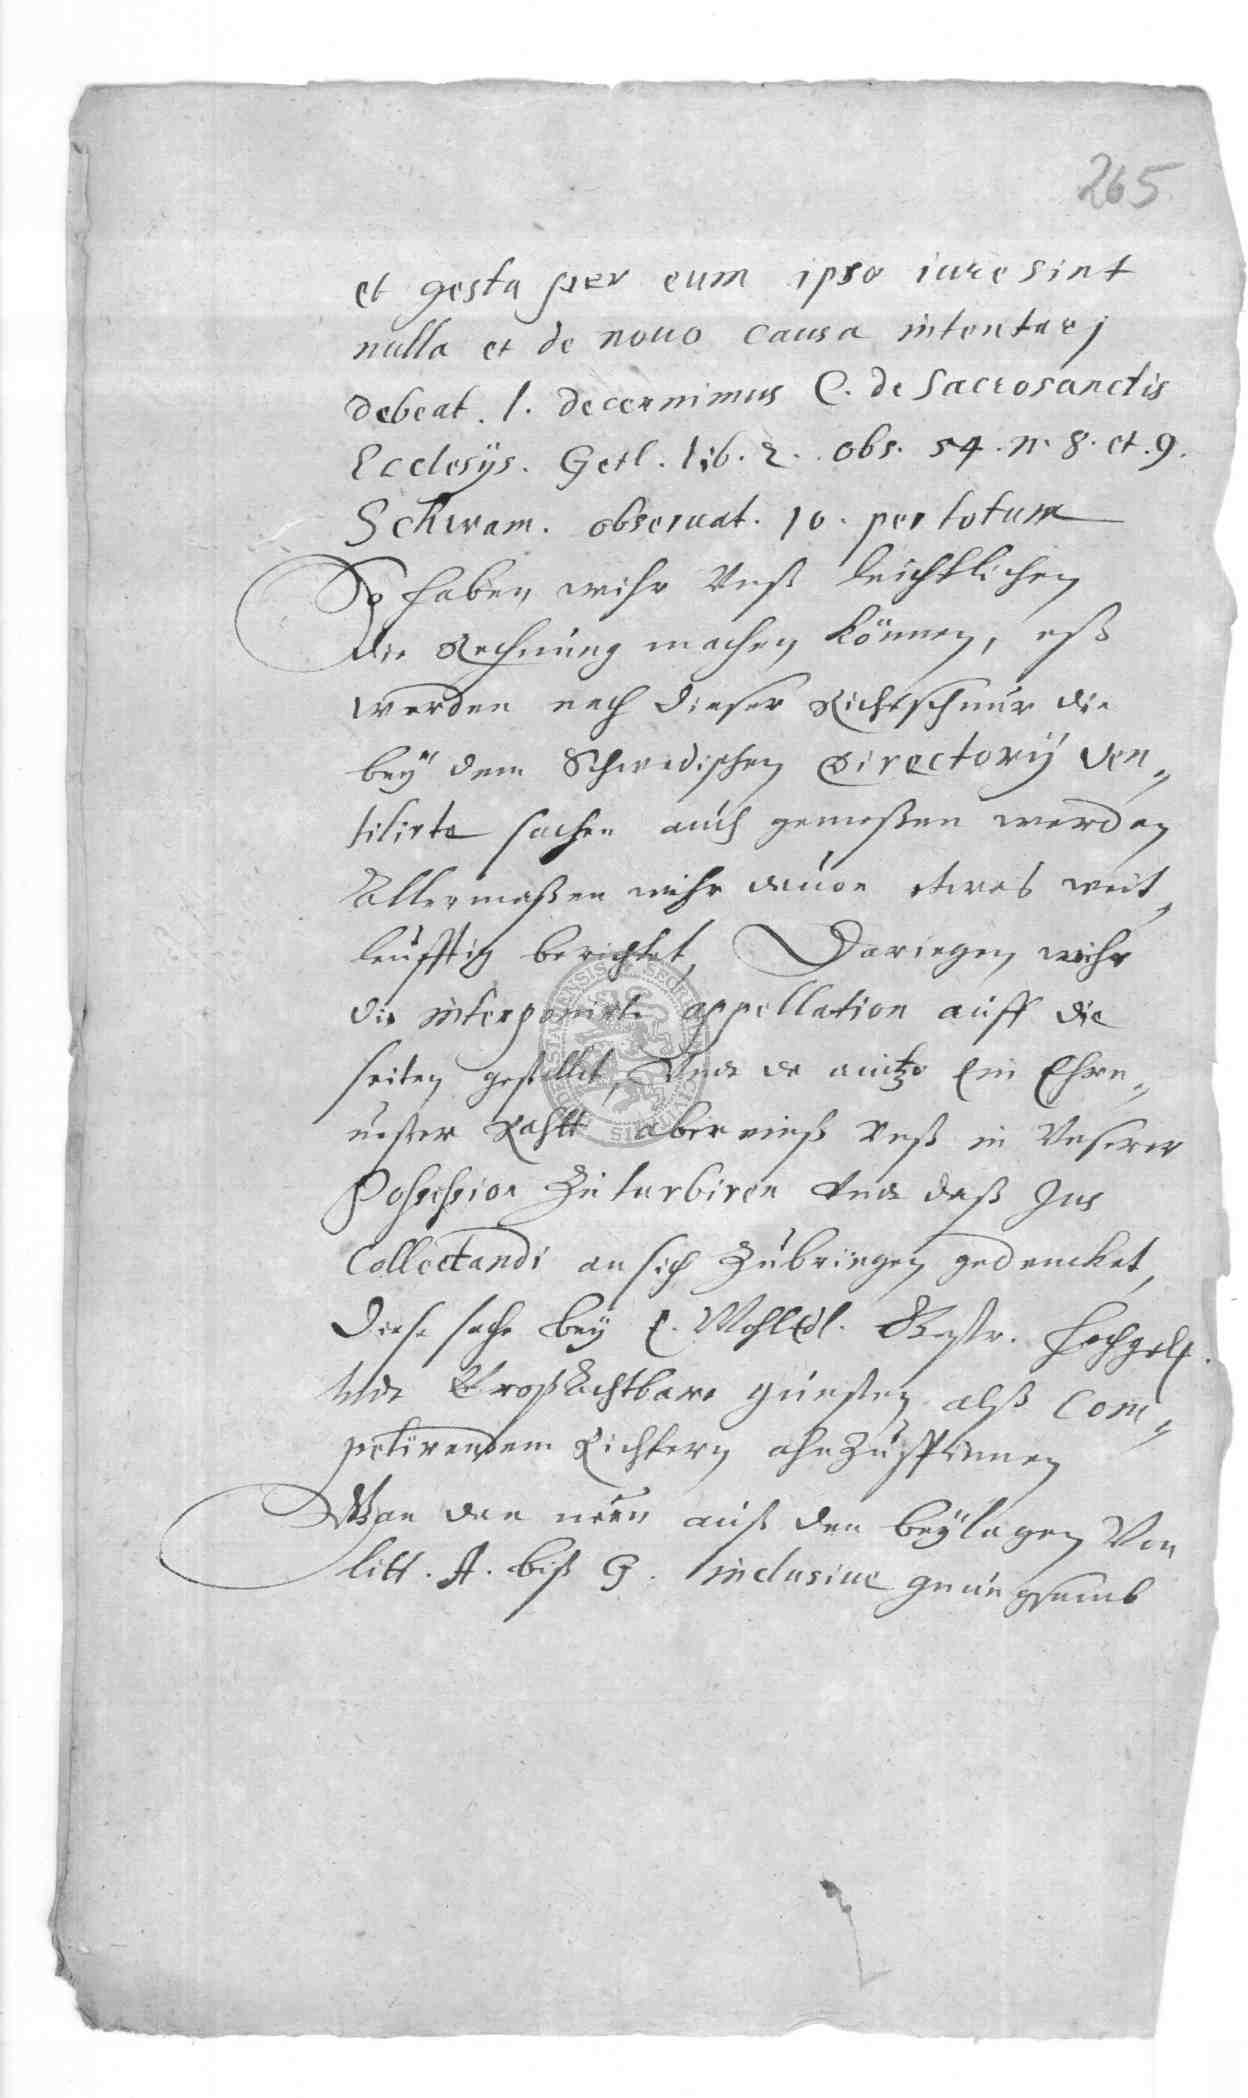 265
et gesta per eum ipso iure sint
nulla et de nouo causa intentarj
debeat. l. decernimus C. de Sacrosanctis
Ecclesijs. Geil. lib. 2. obs. 54. n. 8. et. 9.
Schwam. obseruat. 10. per totum
So haben wihr Unß leichtlichen
die Rechnung machen können, eß
werden nach dieser Richtschnur die
beÿ dem Schwedischen Directorÿ ven„
tilirte sachen auch gemeßen werden
Allermaßen wihr dauon etwas weit„
leufftig berichtet, Dariegen wihr
die interponirte appellation auff die
seiten gestellet, Und da anitzo Ein Ehrn„
uester Rahtt abermahß Unß in Unserer
Possession Zu turbiren Und daß Jus
Collectandi an sich Zubringen gedencket,
Diese sache beÿ E. WohlEdl. Gestr. Hochgel.
Und GroßAchtbare gunsten alß Com„
petirendem Richtern ahnZuspinnen
Wan dan nuen auß den beÿlagen Von
litt. A. biß G. inclusiue gnungsamb